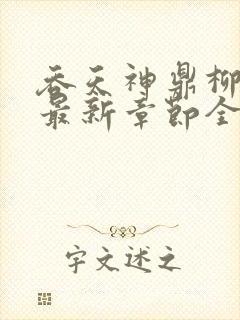 吞天神鼎柳
最新章节全
宇文述之